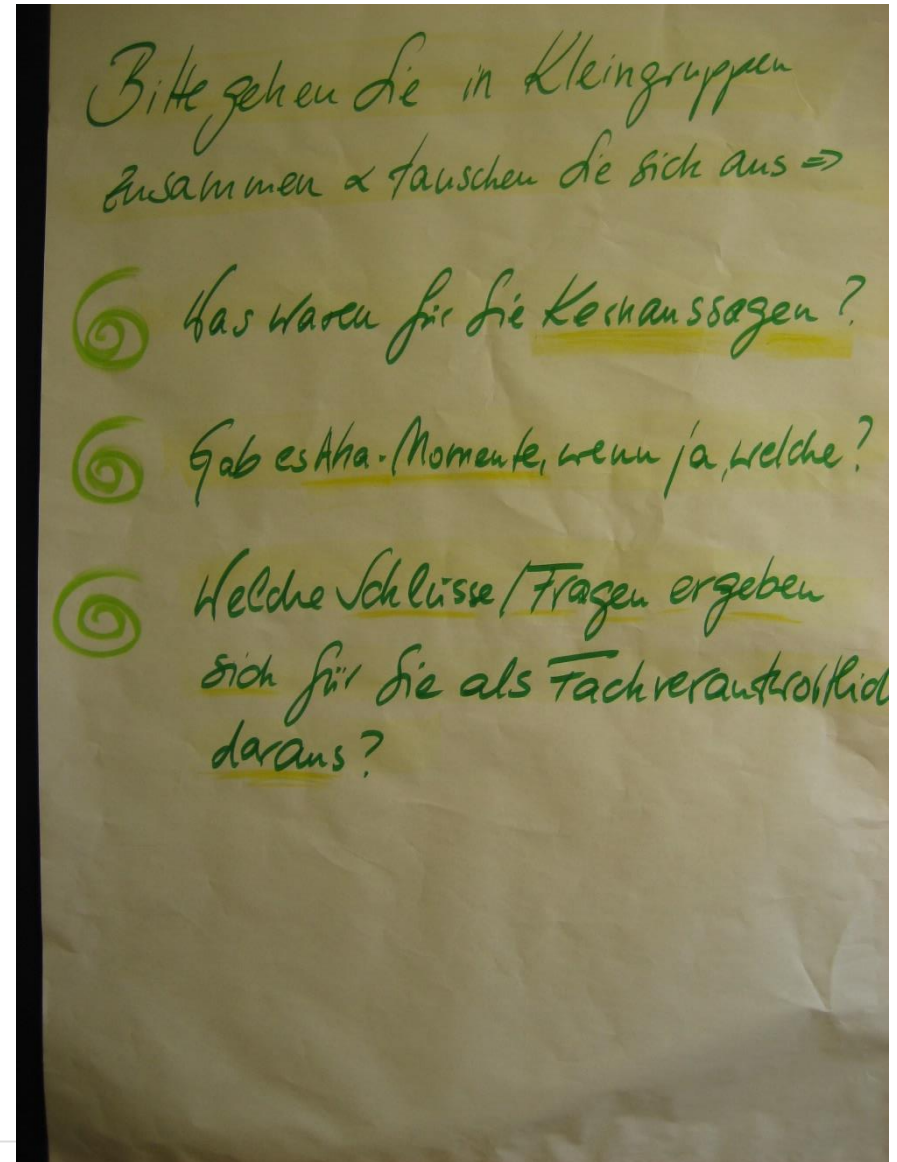 Bitte gehen Sie in Kleingruppen
zusammen & tauschen Sie sich aus =>
Was waren für Sie Kernaussagen?
Gab es Aha-Momente, wenn ja, welche?
Welche Schlüsse / Fragen ergeben
sich für Sie als Fachverantwortlich
daraus?